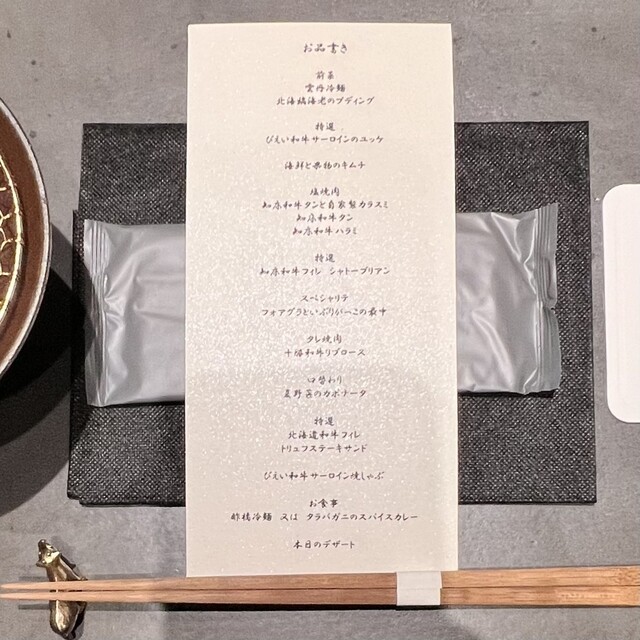 お品書き
前菜
雲丹冷麺
北海縞海老のプディング
特選
びえい和牛サーロインのユッケ
海鮮と果物のキムチ
塩焼肉
知床和牛タンと自家製カラスミ
知床和牛タン
知床和牛ハラミ
特選
知床和牛フィレ シャトーブリアン
スペシャリテ
フォアグラといぶりがっこの最中
タレ焼肉
十勝和牛リブロース
口替わり
夏野菜のカポナータ
特選
北海道和牛フィレ
トリュフステーキサンド
びえい和牛サーロイン焼しゃぶ
お食事
酢橘冷麺 又は タラバガニのスパイスカレー
本日のデザート